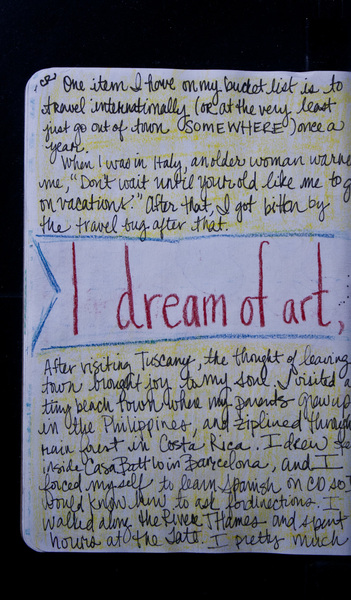 One item I have on my bucket list is to
travel internationally (or at the very least
just go out of town SOMEWHERE) once a
year.
When I was in Italy, an older woman warne
me, "Don't wait until your old like me to g
on vacations." After that, I got bitten by
the travel bug after that.
I dream of art,
After visiting Tuscany, the thought of leaving
town brought joy to my soul. I visited a
tiny beach town where my parents grew up
in the Philippines, and ziplined through
rain forest in Costa Rica. I drew
inside Casa Batllo in Barcelona, and I
forced myself to learn Spanish on CD so I
would know how to ask for directions. I
walked along the River Thames and spent
hours at the Tate. I pretty much